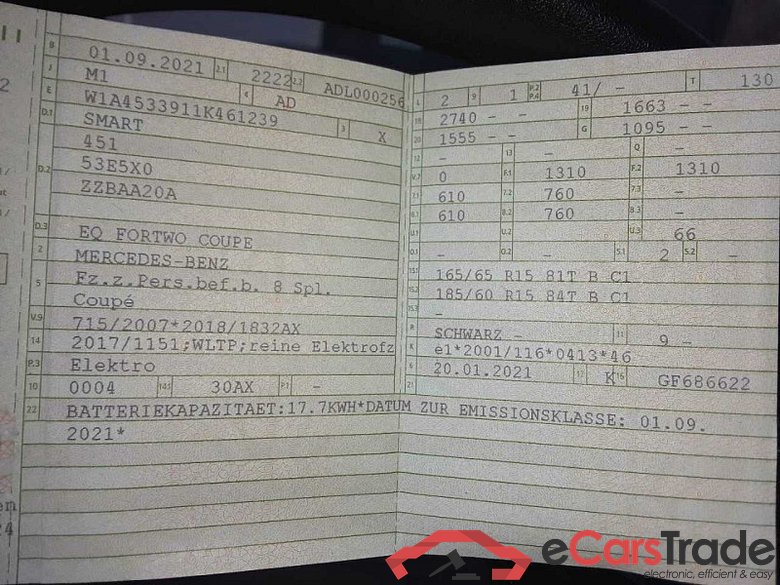 B 01.09.2021 2.1 2222 2.2 ADL000256
J M1 4 AD
E W1A4533911K461239 3 X
D.1 SMART
451
D.2 53E5X0
ZZBAA20A
D.3 EQ FORTWO COUPE
2 MERCEDES-BENZ
5 Fz.z.Pers.bef.b. 8 Spl.
Coupé
V.9 715/2007*2018/1832AX
14 2017/1151;WLTP;reine Elektrofz
P.3 Elektro
10 0004 14.1 30AX P.1 -
22 BATTERIEKAPAZITAET:17.7KWH*DATUM ZUR EMISSIONSKLASSE: 01.09.
2021*
L 2 9 1 P.2 P.4 41/ - T 130
18 2740 - - 19 1663 - -
20 1555 - - G 1095 - -
12 - 13 - Q -
V.7 0 F.1 1310 F.2 1310
7.1 610 7.2 760 7.3 -
8.1 610 8.2 760 8.3 -
U.1 - U.2 - U.3 66
O.1 - O.2 - S.1 2 S.2 -
15.1 165/65 R15 81T B C1
15.2 185/60 R15 84T B C1
15.3 -
R SCHWARZ - 11 9 -
K e1*2001/116*0413*46
6 20.01.2021 17 K 16 GF686622
21
eCarsTrade
electronic, efficient & easy